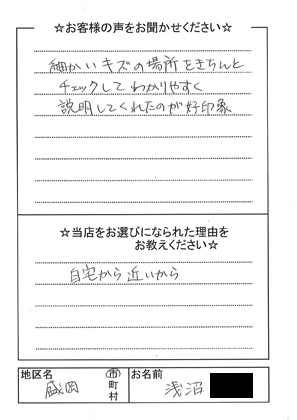 ☆お客様の声をお聞かせください☆
細かいキズの場所をきちんと
チェックしてわかりやすく
説明してくれたのが好印象
☆当店をお選びになられた理由を
お教えください☆
自宅から近いから
地区名 盛岡 市 町 村 お名前 浅沼